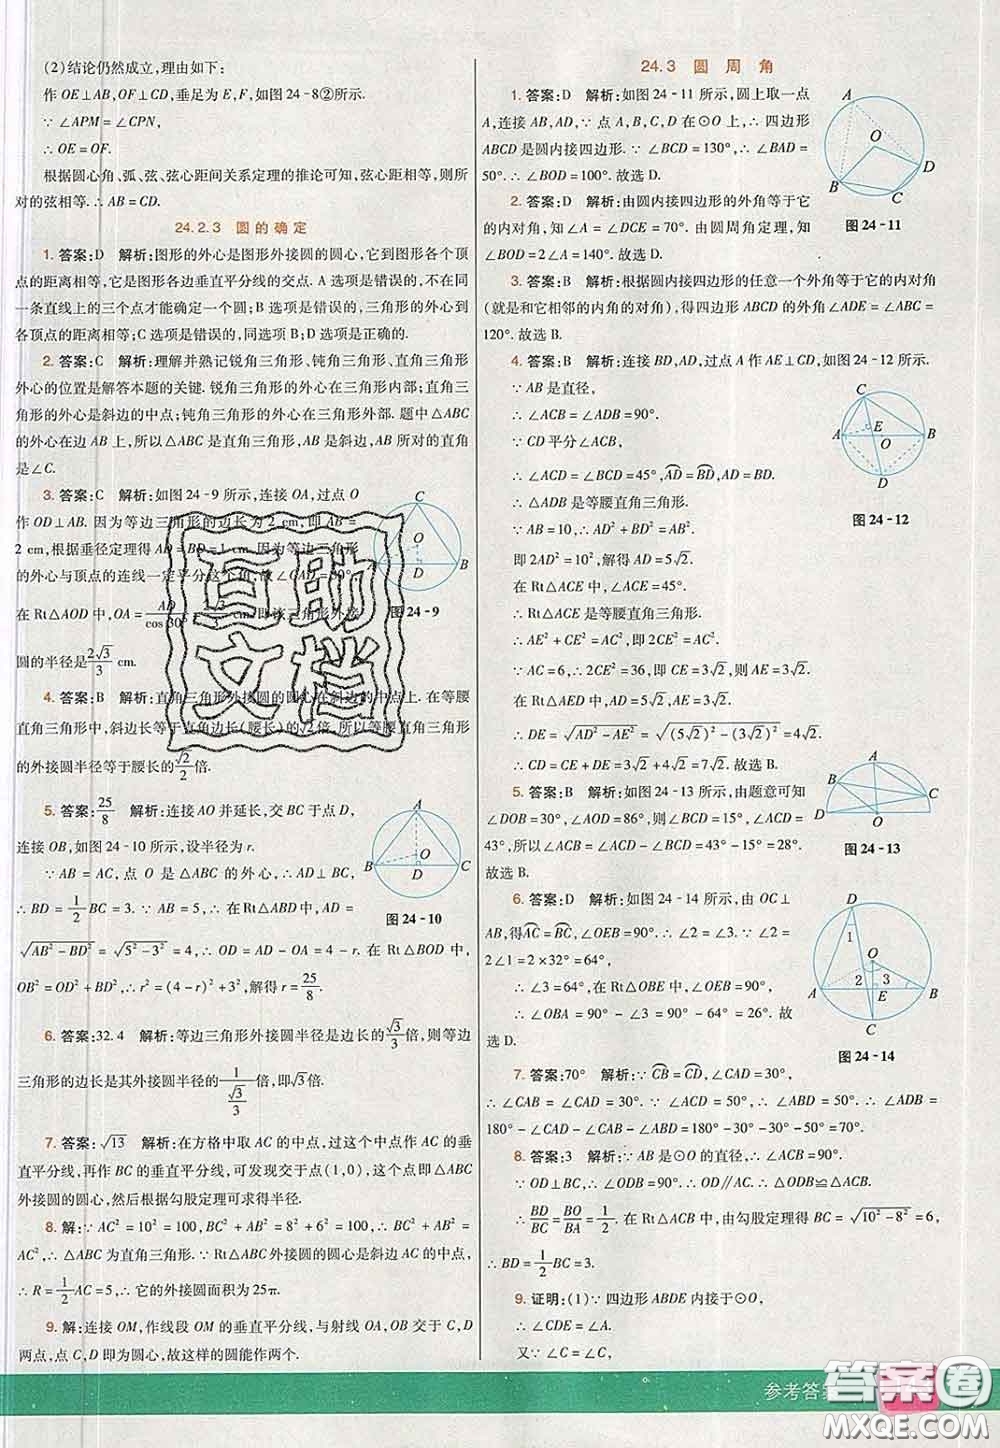 (2)结论仍然成立,理由如下:
作OE⊥AB,OF⊥CD,垂足为E,F,如图24-8②所示.
∵∠APM=∠CPN,
∴OE=OF.
根据圆心角、弧、弦、弦心距间关系定理的推论可知,弦心距相等,则所
对的弦相等.∴AB=CD.
24.2.3 圆的确定
1. 答案:D 解析:图形的外心是图形外接圆的圆心,它到图形各个顶
点的距离相等,它是图形各边垂直平分线的交点. A选项是错误的,不在同
一条直线上的三个点才能确定一个圆;B选项是错误的,三角形的外心到
各顶点的距离相等;C选项是错误的,同选项B;D选项是正确的.
2. 答案:C 解析:理解并熟记锐角三角形、钝角三角形、直角三角形
外心的位置是解答本题的关键. 锐角三角形的外心在三角形内部;直角三
角形的外心是斜边的中点;钝角三角形的外心在三角形外部. 题中△ABC
的外心在边AB上,所以△ABC是直角三角形,AB是斜边,所以最大的直角
是∠C.
3. 答案:C 解析:如图24-9所示,连接OA,过点O
作OD⊥AB. 因为等边三角形的边长为2 cm,即AB=
2 cm,根据垂径定理得AD=BD=1 cm. 因为等边三角形
的外心与顶点的连线一定平分这个角,故∠OAD=30°.
在Rt△AOD中,OA=AD/cos 30°=2√3/3. 即该三角形外接
圆的半径是2√3/3 cm.
C
O
A
D
B
图24-9
4. 答案:B 解析:直角三角形外接圆的圆心在斜边的中点上. 在等腰
直角三角形中,斜边长等于直角边长(腰长)的√2倍. 所以等腰直角三角形
的外接圆半径等于腰长的√2/2倍.
5. 答案:25/8 解析:连接AO并延长,交BC于点D,
连接OB,如图24-10所示,设半径为r.
∵AB=AC,点O是△ABC的外心,
∴BD=1/2BC=3. ∴在Rt△ABD中,AD=
√(AB²-BD²)=√(5²-3²)=4. ∴OD=AD-AO=4-r. 在Rt△BOD中,
OB²=OD²+BD²,∴r²=(4-r)²+3²,解得r=25/8.
A
O
B
D
C
图24-10
6. 答案:32.4 解析:等边三角形外接圆半径是边长的√3/3倍,则等边
三角形的边长是其外接圆半径的1/(√3/3)倍,即√3倍.
7. 答案:√13 解析:在方格中取AC的中点,过这个中点作AC的垂
直平分线,再作BC的垂直平分线,可发现交于点(1,0),这个点即△ABC
外接圆的圆心,然后根据勾股定理可求得半径.
8. 解:∵AC²=10²=100,BC²+AB²=8²+6²=100,∴BC²+AB²=
AC²,∴△ABC为直角三角形.∵Rt△ABC外接圆的圆心是斜边AC的中点,
∴R=1/2AC=5,∴它的外接圆面积为25π.
9. 解:连接OM,作线段OM的垂直平分线,与射线OA,OB交于C,D
两点,点C,D即为圆心,故这样的圆能作两个.
24.3 圆周角
1. 答案:D 解析:如图24-11所示,圆上取一点
A,连接AB,AD.∵点A,B,C,D在⊙O上,∴四边形
ABCD是圆内接四边形.∵∠BCD=130°,∴∠BAD=
50°.∴∠BOD=100°. 故选D.
A
O
B
C
D
图24-11
2. 答案:D 解析:由圆内接四边形的外角等于它
的内对角,知∠A=∠DCE=70°. 由圆周角定理知,
∠BOD=2∠A=140°. 故选D.
3. 答案:B 解析:根据圆内接四边形的任意一个外角等于它的内对角
(就是和它相邻的内角的对角),得四边形ABCD的外角∠ADE=∠ABC=
120°. 故选B.
4. 答案:B 解析:连接BD,AD,过点A作AE⊥CD,如图24-12所示.
∵AB是直径,
∴∠ACB=∠ADB=90°.
∵CD平分∠ACB,
∴∠ACD=∠BCD=45°,AD=BD,AD=BD.
∴△ADB是等腰直角三角形.
∵AB=10,∴AD²+BD²=AB².
即2AD²=10²,解得AD=5√2.
在Rt△ACE中,∠ACE=45°.
∴Rt△ACE是等腰直角三角形.
∴AE²+CE²=AC²,即2CE²=AC².
∵AC=6,∴2CE²=36,即CE=3√2,则AE=3√2.
∵在Rt△AED中,AD=5√2,AE=3√2,
∴DE=√(AD²-AE²)=√((5√2)²-(3√2)²)=4√2.
∴CD=CE+DE=3√2+4√2=7√2. 故选B.
C
E
A
O
B
D
图24-12
5. 答案:B 解析:如图24-13所示,由题意可知
∠DOB=30°,∠AOD=86°,则∠BCD=15°,∠ACD=
43°. ∴∠ACB=∠ACD-∠BCD=43°-15°=28°. 故
选B.
A
B
C
D
O
图24-13
6. 答案:D 解析:如图24-14所示,由OC⊥
AB,得AC=BC,∠OEB=90°.∴∠2=∠3.∵∠2=
2∠1=2×32°=64°,
∴∠3=64°,在Rt△OBE中,∠OEB=90°,
∴∠OBA=90°-∠3=90°-64°=26°. 故
选D.
D
1
O
2
3
A
E
B
C
图24-14
7. 答案:70° 解析:∵CB=CD,∠CAD=30°,
∴∠CAB=∠CAD=30°.∴∠DBC=∠CAD=30°.∵∠ACD=50°,∴∠ADB=
180°-∠CAB-∠CAD-∠ABD=180°-50°-30°-30°=70°.
8. 答案:3 解析:∵AB是⊙O的直径,∴∠C=90°.
∵OD⊥BC,∴∠ODB=90°.∴OD∥AC.∴△ODB∽△ACB.
∴BD/BC=BO/BA=1/2. 在Rt△ACB中,由勾股定理得BC=√(10²-8²)=6,
∴BD=1/2BC=3.
9. 证明:(1)∵四边形ABDE内接于⊙O,
∴∠CDE=∠A.
又∵∠C=∠C,
参考答案
互助
文档
答案卷
MXQE.COM